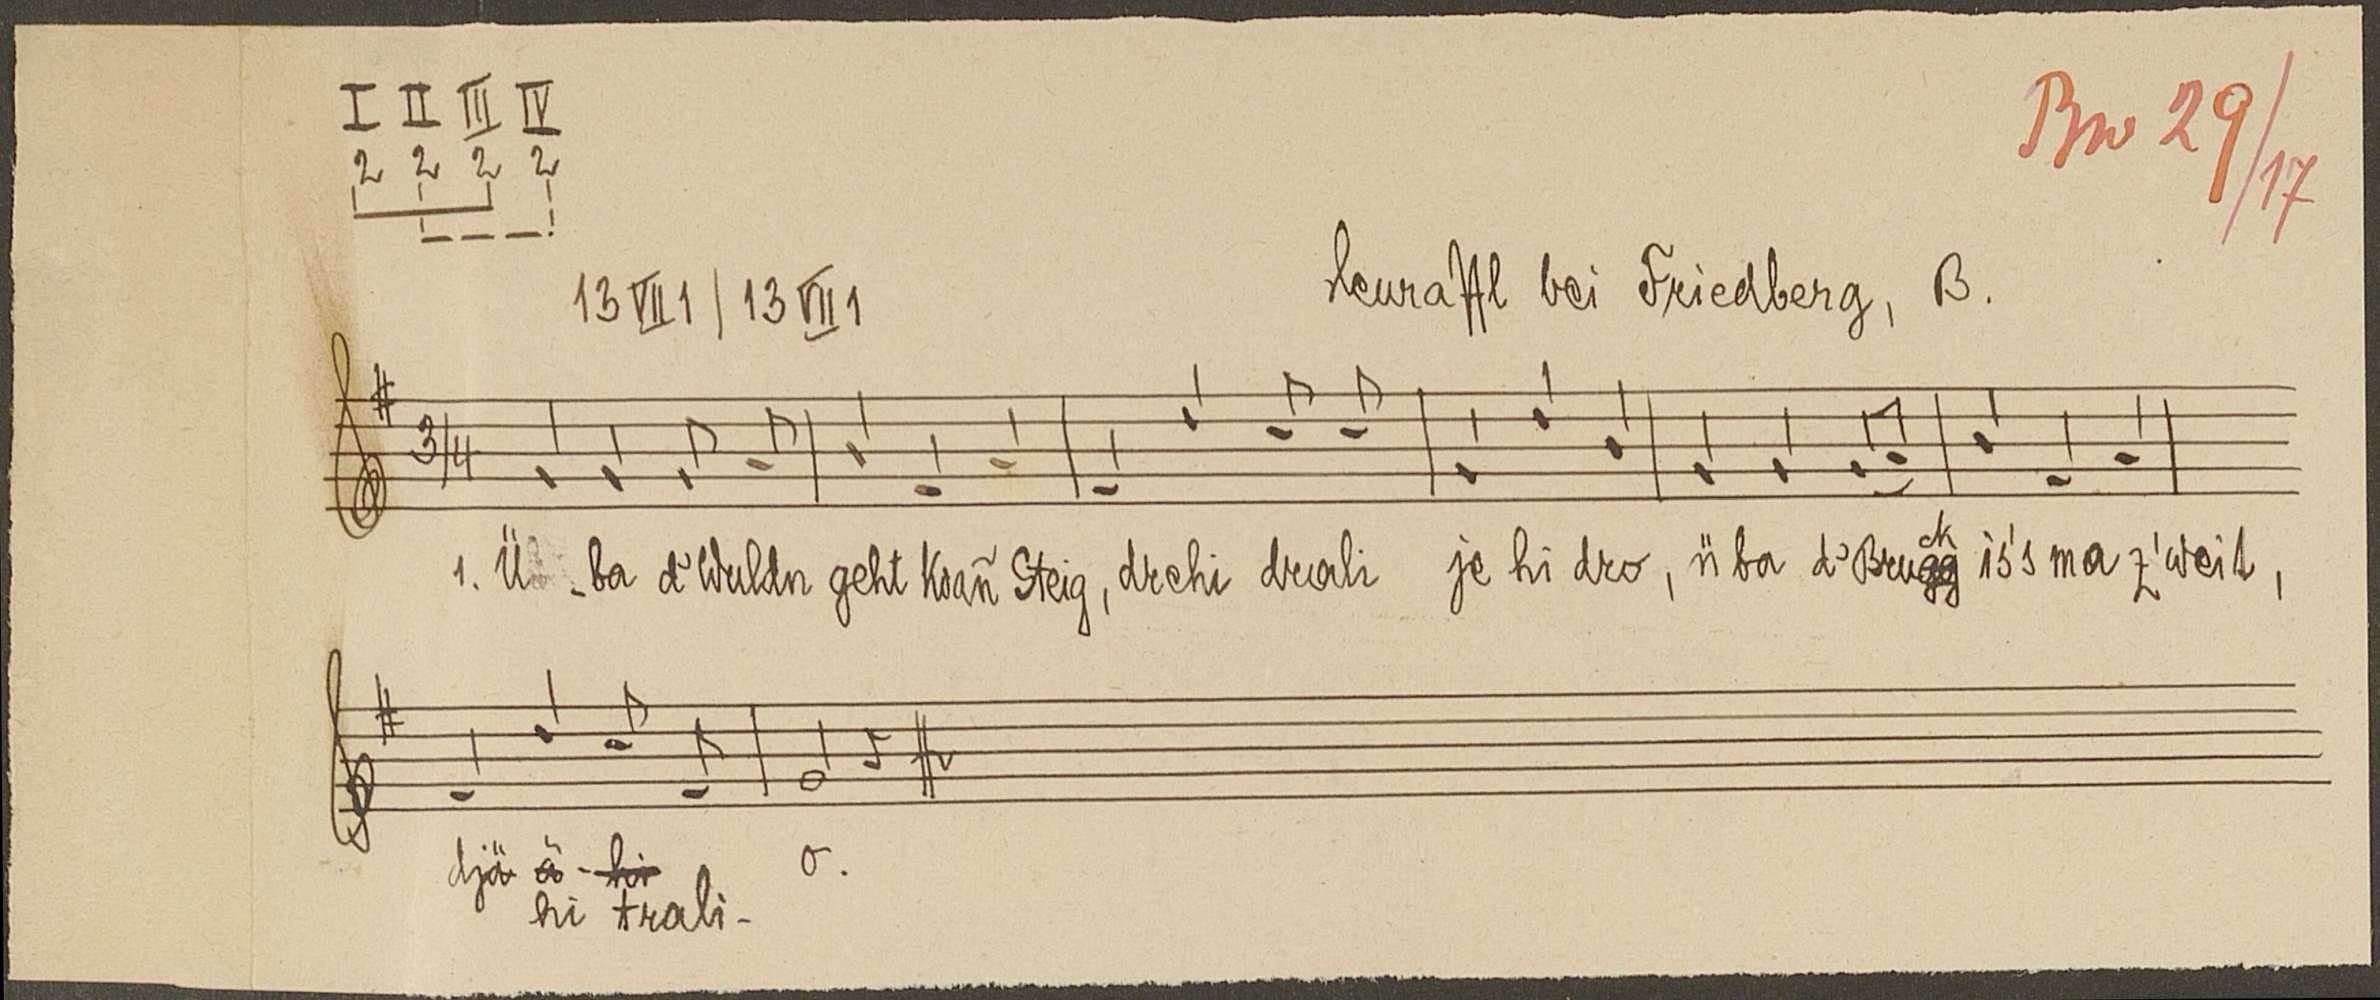 I II III IV
2 2 2 2
Bw 29/17
13 VII 1 | 13 VII 1
Heuraffl bei Friedberg, B.
3/4
1. Ü - ba d' Wuldn geht koañ Steig, drehi droali je hi dro, ü ba d' Bruck is's ma z'weit,
djä ä - hi o.
hi trali -